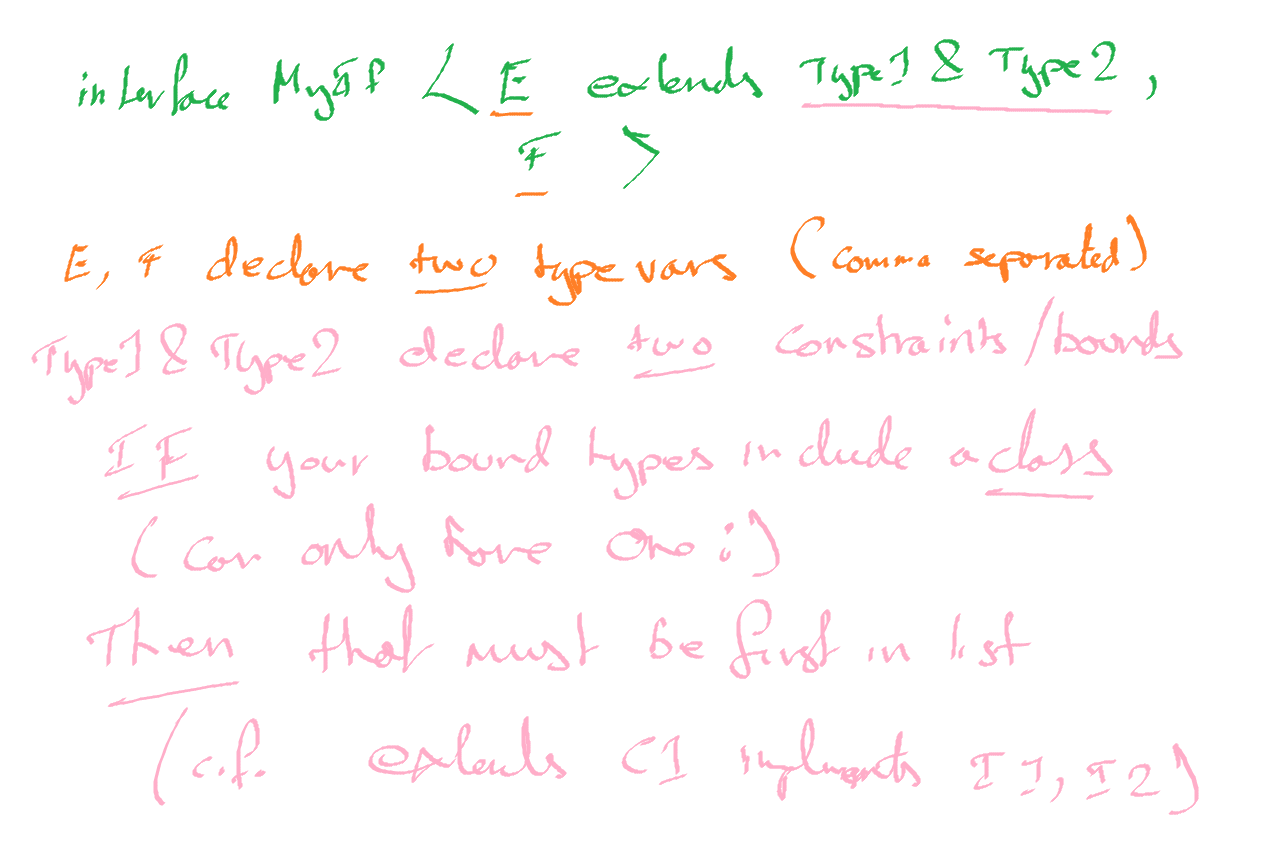 interface MyIF < E extends Type1 & Type2,
F >
E, F declare two type vars (comma separated)
Type1 & Type2 declare two constraints/bounds
IF your bound types include a class
(can only have one :)
Then that must be first in list
(c.f. extends C1 implements I1, I2)